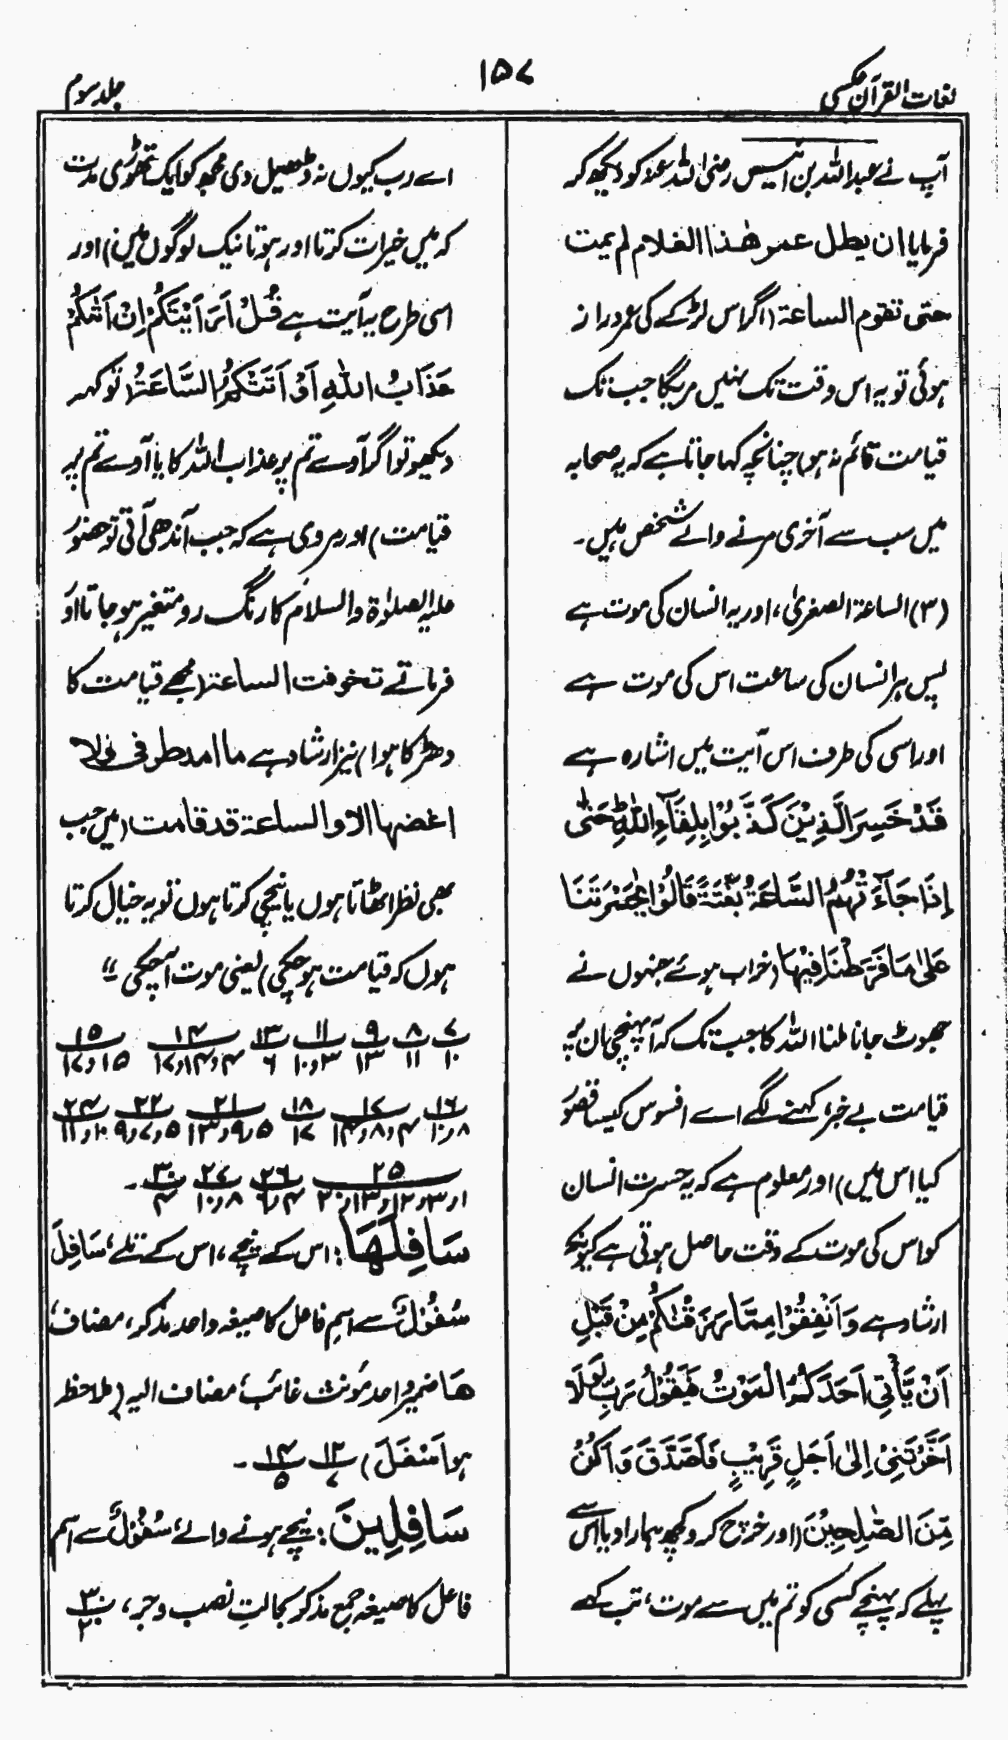 لغات القرآن عکسی
۱۵۷
جلد سوم
آپ نے عبداللہ بن انیس رضی اللہ عنہ کو دیکھ کر
فرمایا ان یطل عمر ھٰذا الغلام لم یمت
حتی تقوم الساعة (اگر اس لڑکے کی عمر دراز
ہوئی تو یہ اس وقت تک نہیں مریگا جب تک
قیامت قائم نہ ہو) چنانچہ کہا جاتا ہے کہ یہ صحابہ
میں سب سے آخری مرنے والے شخص ہیں۔
(۳) الساعۃ الصغریٰ، اور یہ انسان کی موت ہے
پس ہر انسان کی ساعت اس کی موت ہے
اور اسی کی طرف اس آیت میں اشارہ ہے
قَدْ خَسِرَ الَّذِیْنَ کَذَّبُوْا بِلِقَآءِ اللّٰہِ حَتّٰی
اِذَا جَآءَتْہُمُ السَّاعَۃُ بَغْتَۃً قَالُوْا یٰحَسْرَتَنَا
عَلٰی مَا فَرَّطْنَا فِیْہَا (خراب ہوئے جنہوں نے
جھوٹ جانا ملنا اللہ کا جب تک کہ آپہنچی ان پر
قیامت بے خبر، کہنے لگے اے افسوس کیسا قصور
کیا اس میں) اور معلوم ہے کہ یہ حسرت انسان
کو اس کی موت کے وقت حاصل ہوتی ہے کیونکہ
ارشاد ہے وَاَنْفِقُوْا مِمَّا رَزَقْنٰکُمْ مِنْ قَبْلِ
اَنْ یَّأْتِیَ اَحَدَکُمُ الْمَوْتُ فَیَقُوْلُ رَبِّ لَوْلَا
اَخَّرْتَنِیْ اِلٰی اَجَلٍ قَرِیْبٍ فَاَصَّدَّقَ وَاَکُنْ
مِّنَ الصّٰلِحِیْنَ (اور خرچ کرو کچھ ہمارا دیا اس سے
پہلے کہ پہنچے کسی کو تم میں سے موت، تب کہے
اے رب کیوں نہ ڈھیل دی مجھ کو ایک تھوڑی مدت
کہ میں خیرات کرتا اور ہوتا نیک لوگوں میں) اور
اسی طرح یہ آیت ہے قُلْ اَرَاَیْتَکُمْ اِنْ اَتٰکُمْ
عَذَابُ اللّٰہِ اَوْ اَتَتْکُمُ السَّاعَۃُ (تو کہہ
دیکھو تو اگر آوے تم پر عذاب اللہ کا یا آوے تم پر
قیامت) اور مروی ہے کہ جب آندھی آتی تو حضور
علیہ الصلوٰۃ والسلام کا رنگ رو متغیر ہو جاتا اور
فرماتے تخوفت الساعة (مجھے قیامت کا
دھڑکا ہوا) نیز ارشاد ہے ما امد طرفی ولا
اغضہا الا والساعة قد قامت (میں جب
بھی نظر اٹھاتا ہوں یا نیچی کرتا ہوں تو یہ خیال کرتا
ہوں کہ قیامت ہو چکی) یعنی موت آ چکی ؛؛
۷/۱۰ ۸/۱۱ ۹/۱۳ ۱۱/۳و۱۰ ۱۳/۶ ۱۴/۴و۱۴و۱۷ ۱۵/۱۵و۱۷
۱۶/۸و۱۰ ۱۷/۴و۸و۱۴ ۱۸/۱۷ ۲۱/۵و۹و۱۳ ۲۲/۵و۷و۹ ۲۴/۱۰و۱۱
۲۵/۱و۳و۱۲و۱۳و۲۰ ۲۶/۴و۶ ۲۷/۸و۱۰ ۳۰/۴ ۔
سَافِلَهَا: اس کے نیچے، اس کے تلے، سَافِلَ
سُفُوْلٌ سے اسم فاعل کا صیغہ واحد مذکر، مضاف،
ھَا ضمیر واحد مؤنث غائب، مضاف الیہ (ملاحظہ
ہو اَسْفَلَ) ۱۲/۷ ۱۴/۵ ۔
سَافِلِينَ: نیچے ہونے والے، سُفُوْلٌ سے اسم
فاعل کا صیغہ جمع مذکر بحالتِ نصب وجر، ۳۰/۲۰